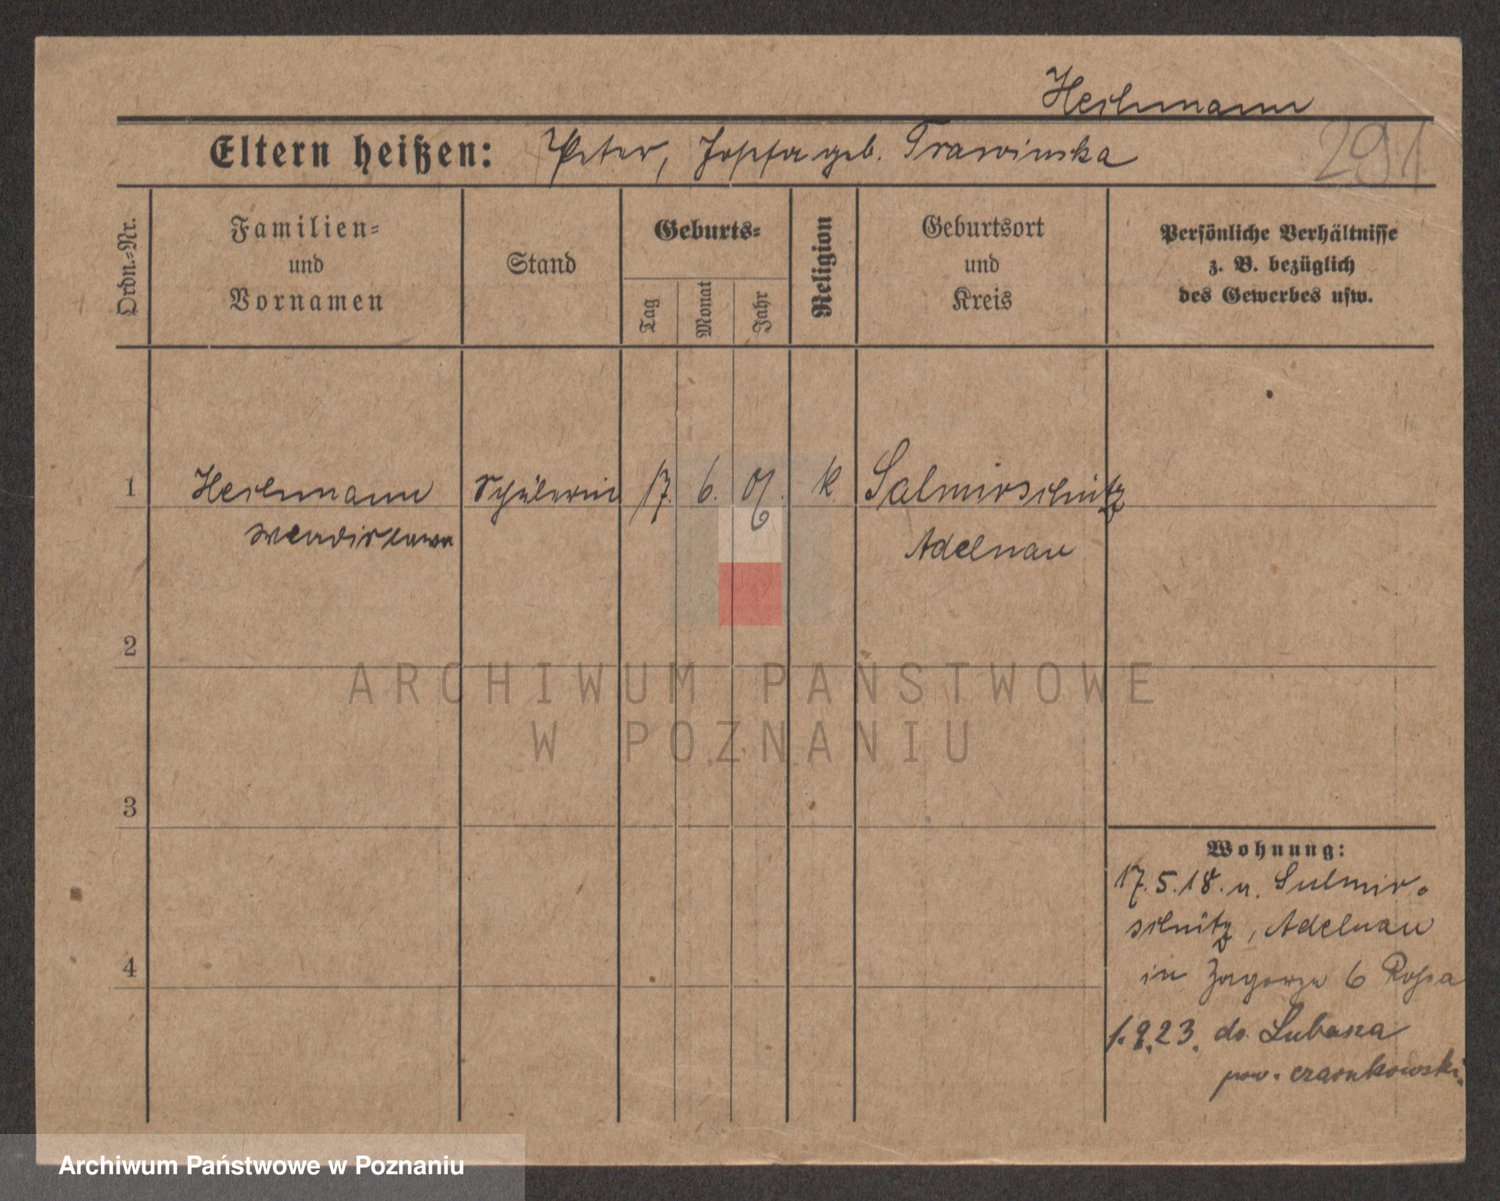 Heilmann
Eltern heißen: Peter, Josefa geb. Trawinska
291
Ordn.-Nr.
Familien-
und
Vornamen
Stand
Geburts-
Tag
Monat
Jahr
Religion
Geburtsort
und
Kreis
Persönliche Verhältnisse
z. B. bezüglich
des Gewerbes usw.
1 Heilmann Schülerin 17. 6. 07. k Salmirschütz
Wladislawa Adelnau
2
3
4
Wohnung:
17.5.18. n.
schütz, Adelnau
in Zagorze 6
1.9.23. do Lubasza
pow. czarnkowski.
ARCHIWUM PAŃSTWOWE
W POZNANIU
Archiwum Państwowe w Poznaniu